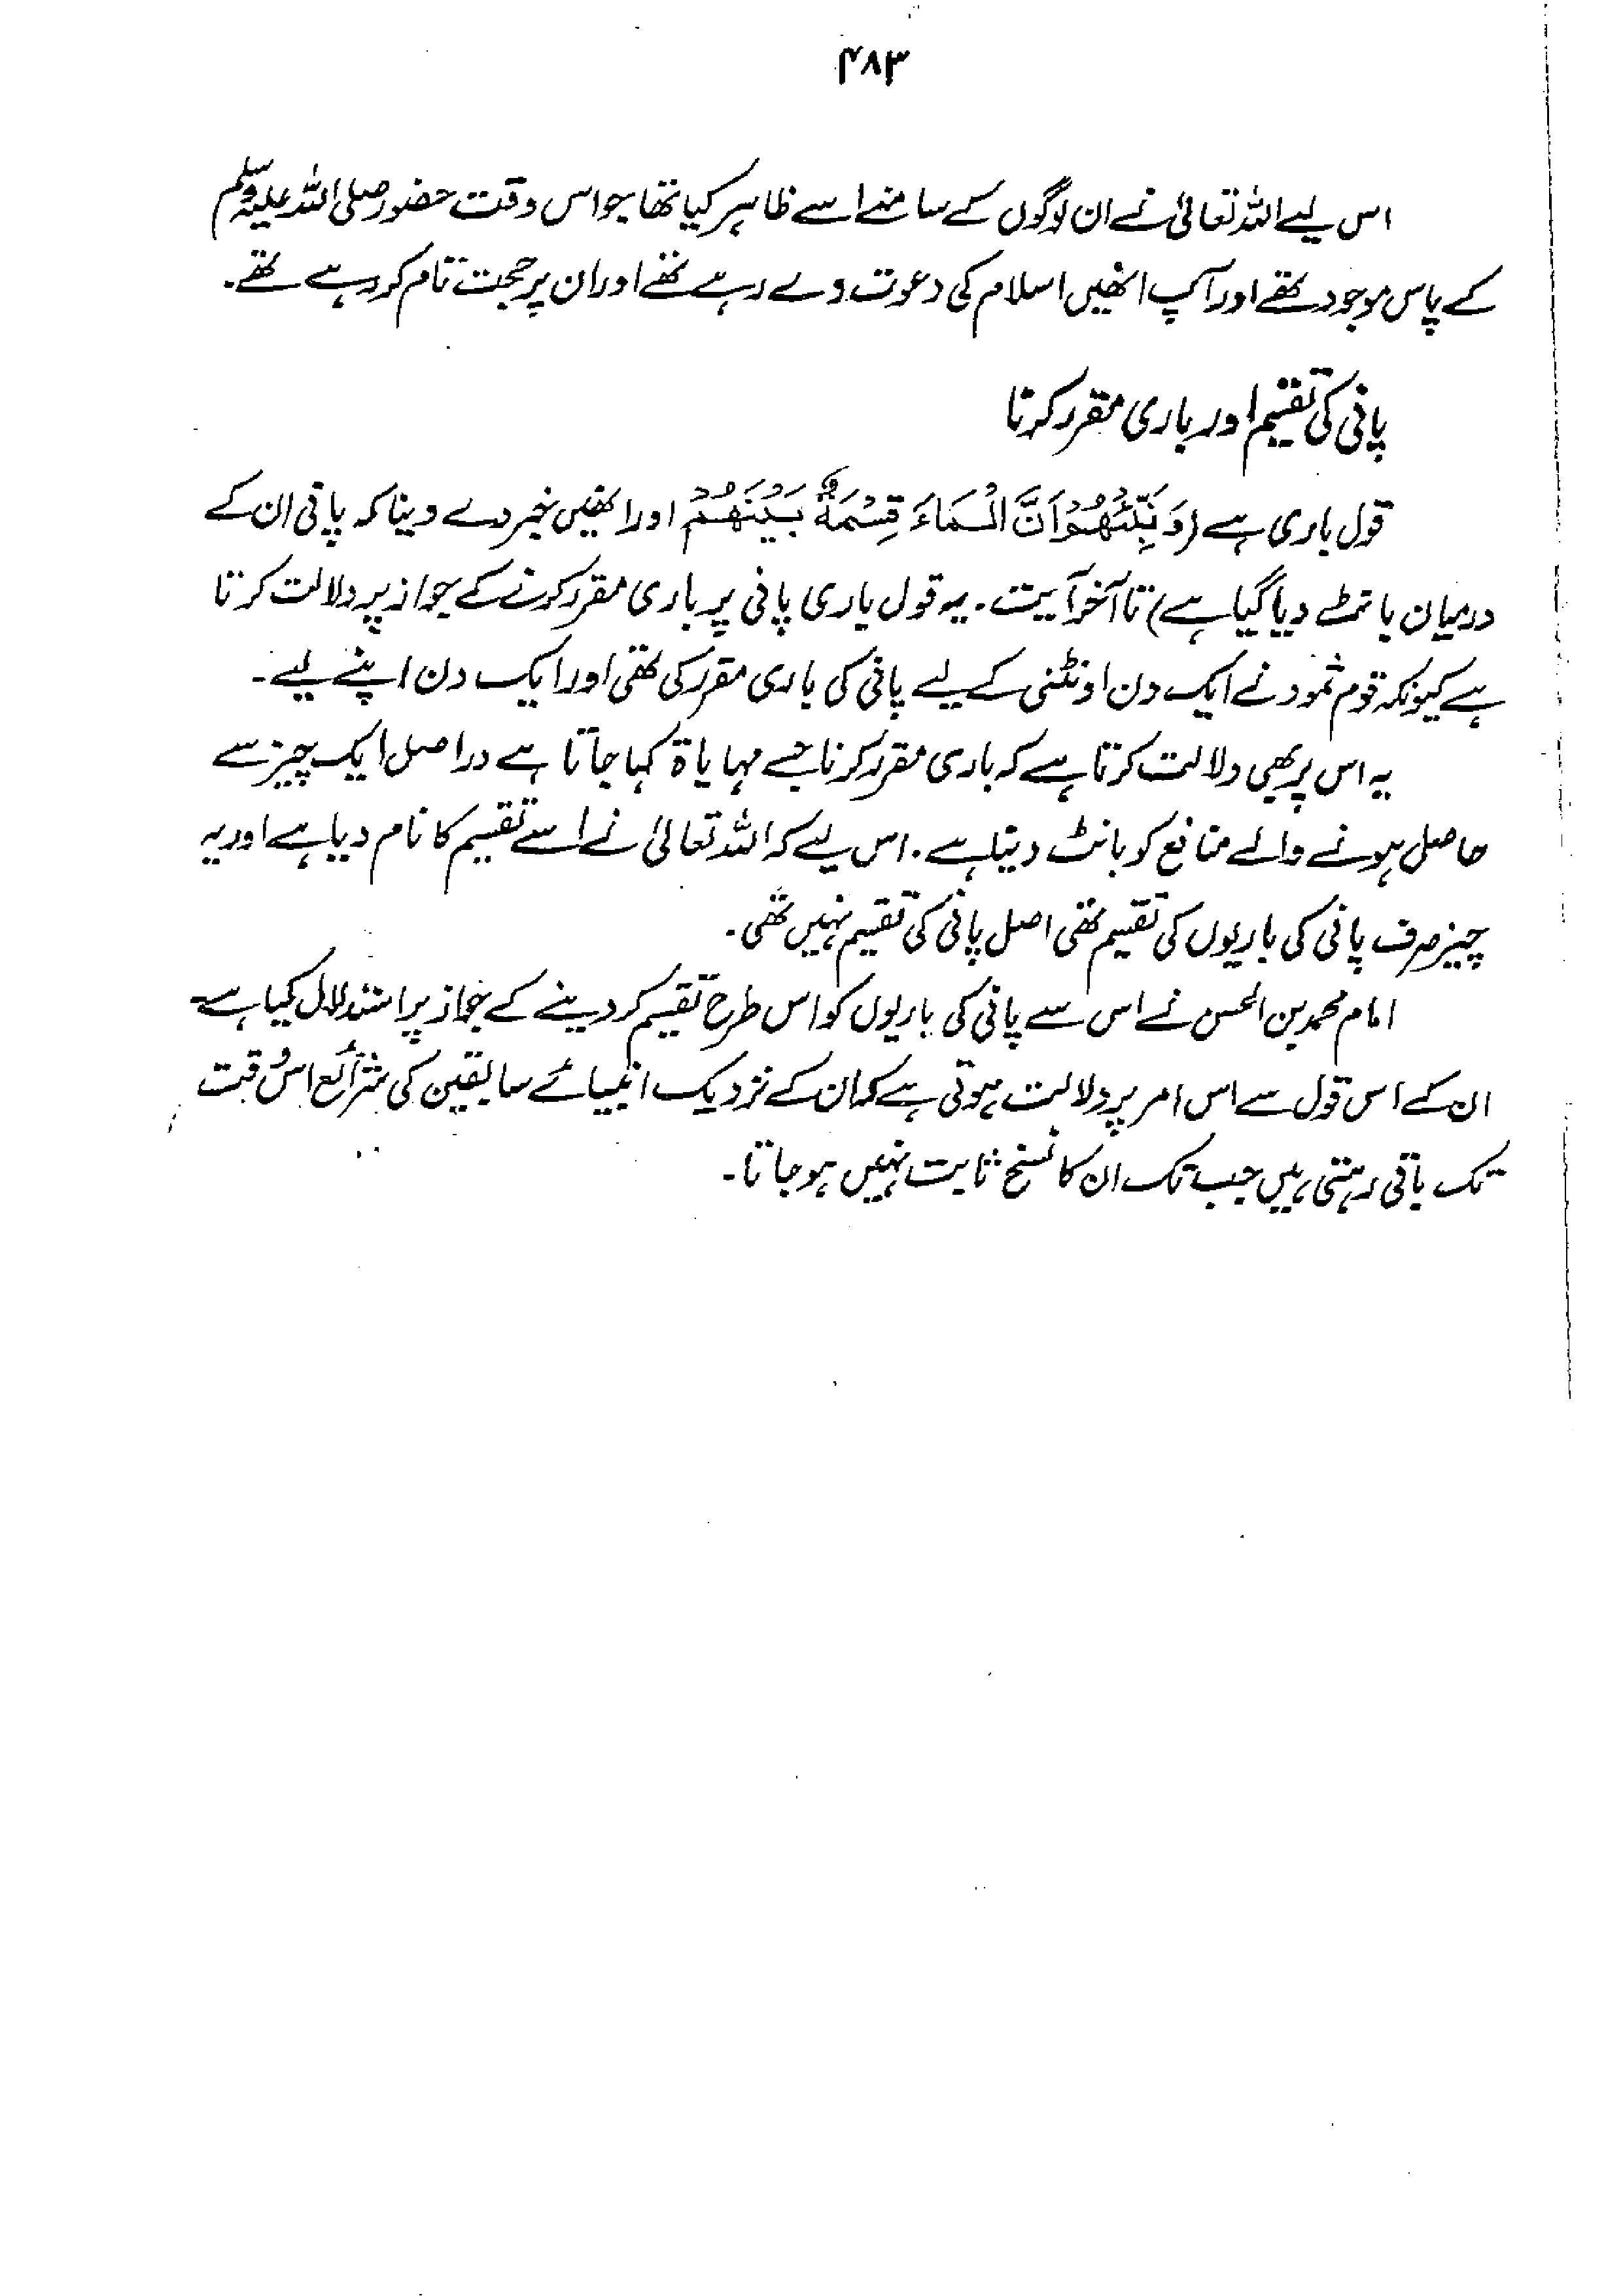 ۴۸۳
اس لیے اللہ تعالیٰ نے ان لوگوں کے سامنے اسے ظاہر کیا تھا جو اس وقت حضور صلی اللہ علیہ وسلم
کے پاس موجود تھے اور آپ انھیں اسلام کی دعوت دے رہے تھے اور ان پر حجت تام کر رہے تھے۔
پانی کی تقسیم اور باری مقرر کرنا
قول باری ہے (وَنَبِّئْهُمْ اَنَّ الْمَاءَ قِسْمَةٌ بَيْنَهُمْ اور انھیں خبر دے دینا کہ پانی ان کے
درمیان بانٹ دیا گیا ہے) تا آخر آیت۔ یہ قول باری پانی پر باری مقرر کرنے کے جواز پر دلالت کرتا
ہے کیونکہ قوم ثمود نے ایک دن اونٹنی کے لیے پانی کی باری مقرر کی تھی اور ایک دن اپنے لیے۔
یہ اس پر بھی دلالت کرتا ہے کہ باری مقرر کرنا جسے مہایاۃ کہا جاتا ہے دراصل ایک چیز سے
حاصل ہونے والے منافع کو بانٹ دینا ہے۔ اس لیے کہ اللہ تعالیٰ نے اسے تقسیم کا نام دیا ہے اور یہ
چیز صرف پانی کی باریوں کی تقسیم تھی اصل پانی کی تقسیم نہیں تھی۔
امام محمد بن الحسن نے اس سے پانی کی باریوں کو اس طرح تقسیم کر دینے کے جواز پر استدلال کیا ہے
ان کے اس قول سے اس امر پر دلالت ہوتی ہے کہ ان کے نزدیک انبیائے سابقین کی شرائع اس وقت
تک باقی رہتی ہیں جب تک ان کا نسخ ثابت نہیں ہو جاتا۔